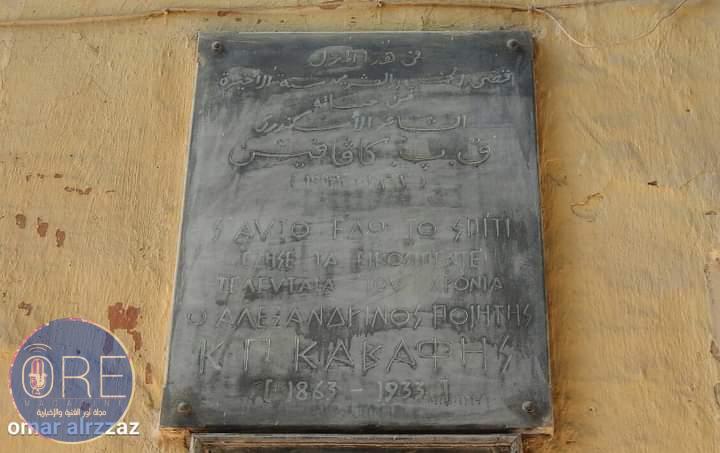 في هذا المنزل
قضى الخمس والعشرين سنة الأخيرة
من حياته
الشاعر الأسكندري
ق. پ. كاڤافيس
Σ ΑΥΤΟ ΕΔΩ ΤΟ ΣΠΙΤΙ
ΕΖΗΣΕ ΤΑ ΕΙΚΟΣΙΠΕΝΤΕ
ΤΕΛΕΥΤΑΙΑ ΤΟΥ ΧΡΟΝΙΑ
Ο ΑΛΕΞΑΝΔΡΙΝΟΣ ΠΟΙΗΤΗΣ
Κ Π ΚΑΒΑΦΗΣ
[ 1863 - 1933 ]
ORE
MAGAZINE
مجلة أور الفنية والإخبارية
omar alrzzaz